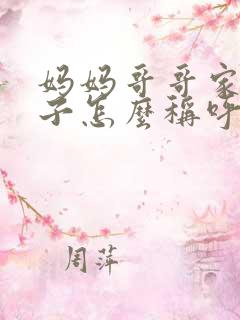 妈妈哥哥家
子怎麼稱呼
周萍